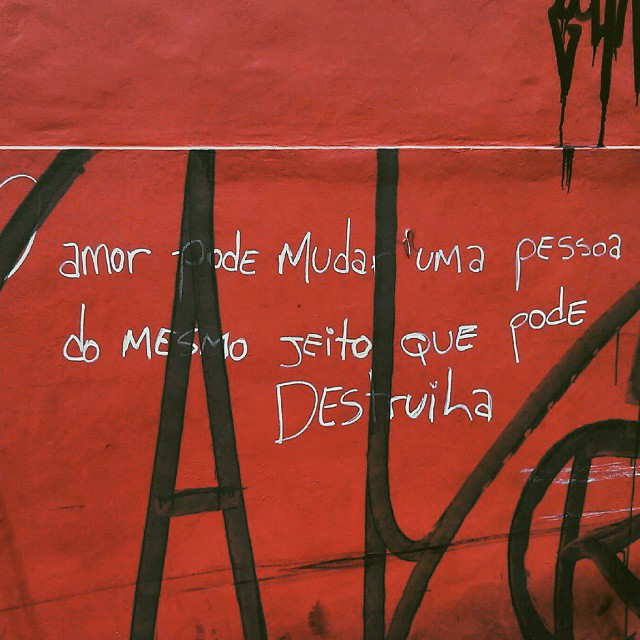 amor pode Mudar uma pessoa
do MESMO jeito QUE pode
DEStruiha